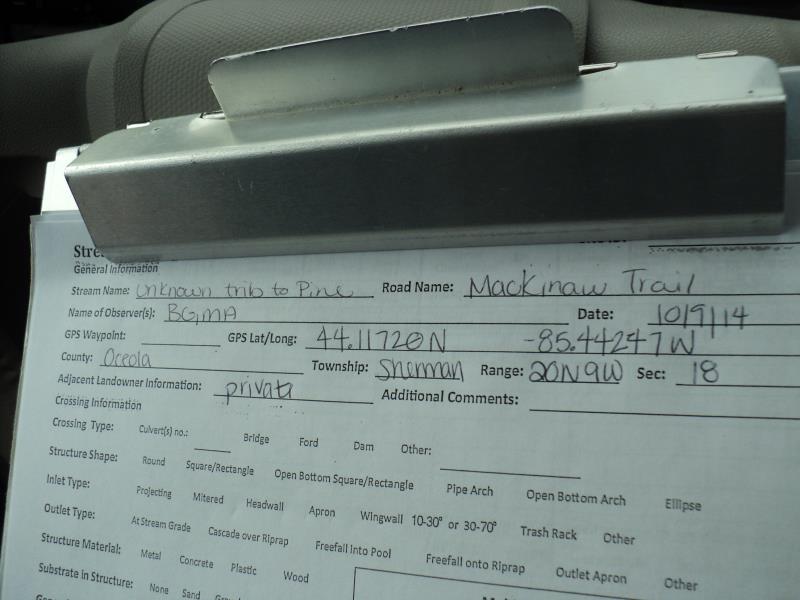 General Information
Stream Name: Unknown trib to Pine Road Name: Mackinaw Trail
Name of Observer(s): BG, MA Date: 10/9/14
GPS Waypoint: GPS Lat/Long: 44.11720N -85.44247W
County: Oceola Township: Sherman Range: 20N9W Sec: 18
Adjacent Landowner Information: private Additional Comments:
Crossing Information
Crossing Type: Culvert(s) no.: Bridge Ford Dam Other:
Structure Shape: Round Square/Rectangle Open Bottom Square/Rectangle Pipe Arch Open Bottom Arch Ellipse
Inlet Type: Projecting Mitered Headwall Apron Wingwall 10-30° or 30-70° Trash Rack Other
Outlet Type: At Stream Grade Cascade over Riprap Freefall Into Pool Freefall onto Riprap Outlet Apron Other
Structure Material: Metal Concrete Plastic Wood
Substrate in Structure: None Sand